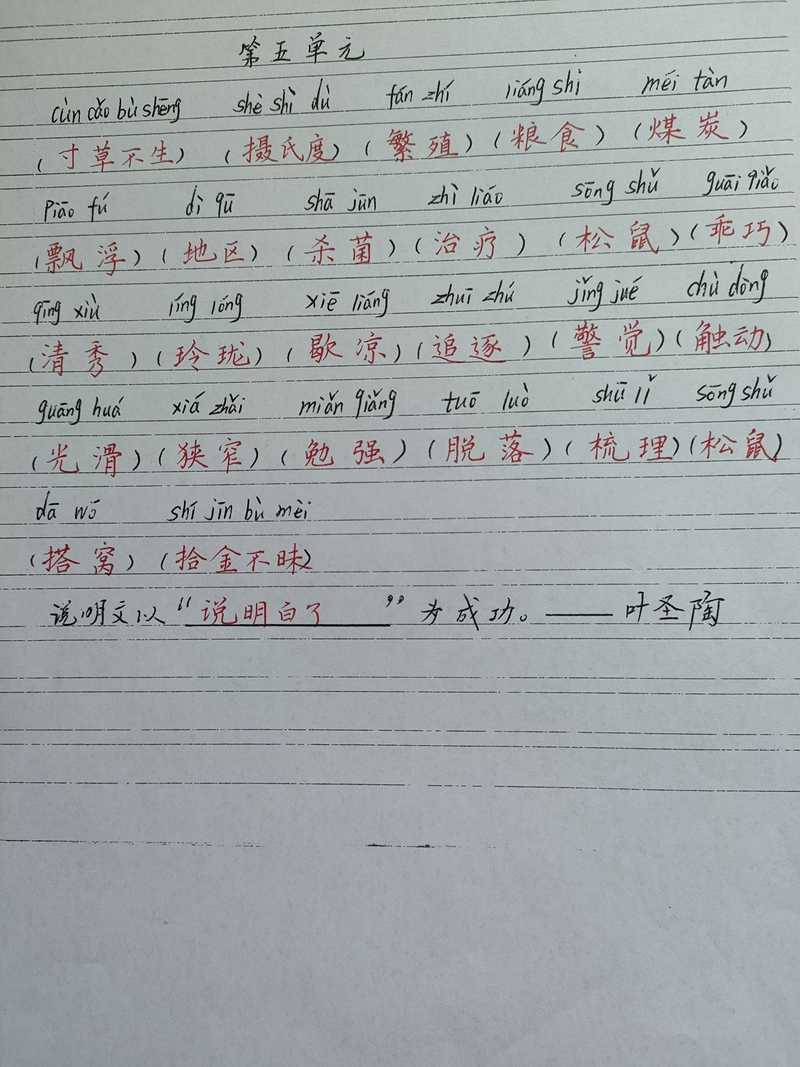 第五单元
cùn cǎo bù shēng shè shì dù fán zhí liáng shi méi tàn
(寸草不生) (摄氏度) (繁殖) (粮食) (煤炭)
piāo fú dì qū shā jūn zhì liáo sōng shǔ guāi qiǎo
(飘浮) (地区) (杀菌) (治疗) (松鼠) (乖巧)
qīng xiù líng lóng xiē liáng zhuī zhú jǐng jué chù dòng
(清秀) (玲珑) (歇凉) (追逐) (警觉) (触动)
guāng huá xiá zhǎi miǎn qiǎng tuō luò shū lǐ sōng shǔ
(光滑) (狭窄) (勉强) (脱落) (梳理) (松鼠)
dā wō shí jīn bù mèi
(搭窝) (拾金不昧)
说明文以“说明白了”为成功。——叶圣陶